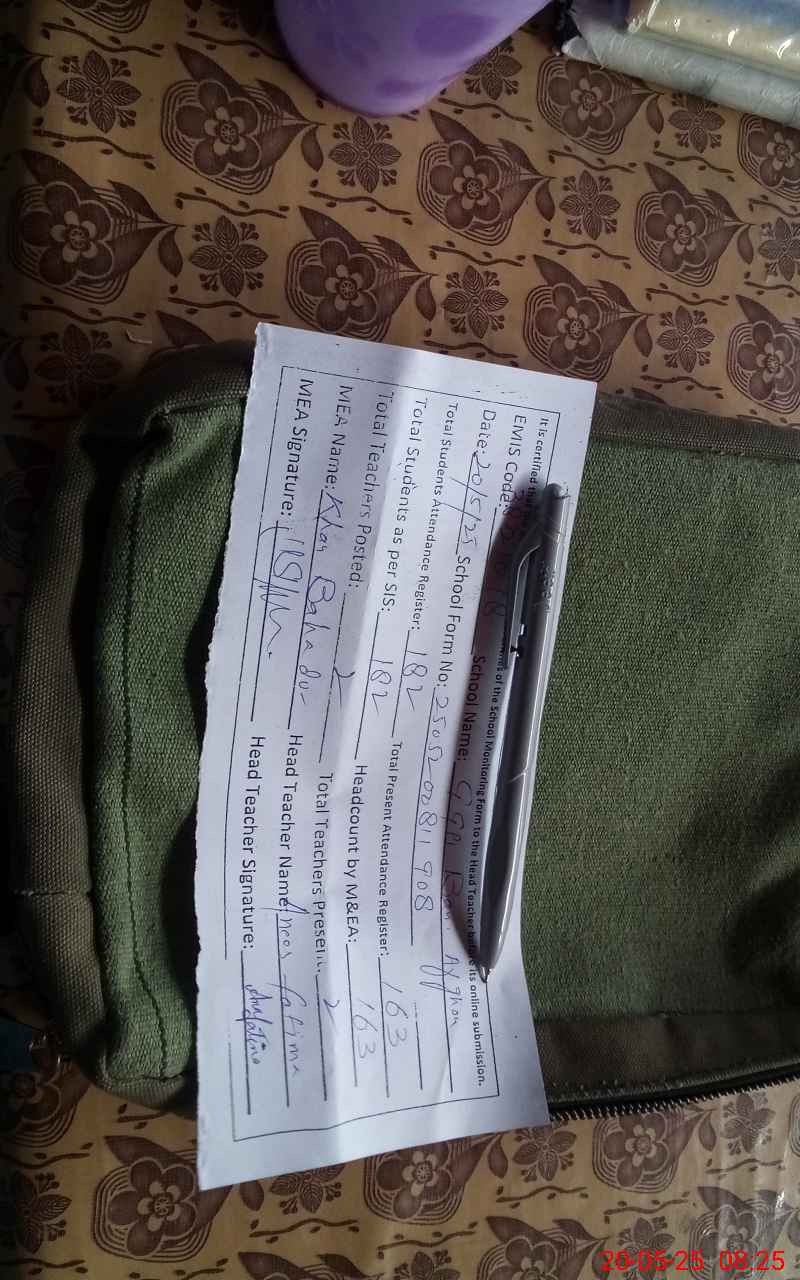 It is certified of the School Monitoring Form to the Head Teacher before its online submission.
EMIS Code: School Name: Afghan
Date: 20/5/25 School Form No: 2505200811908
Total Students Attendance Register: 182 Total Present Attendance Register: 163
Total Students as per SIS: 182 Headcount by M&EA: 163
Total Teachers Posted: 2 Total Teachers Present: 2
MEA Name: Khan Bahadur Head Teacher Name: Fatima
MEA Signature: Head Teacher Signature:
20-05-25 08:25